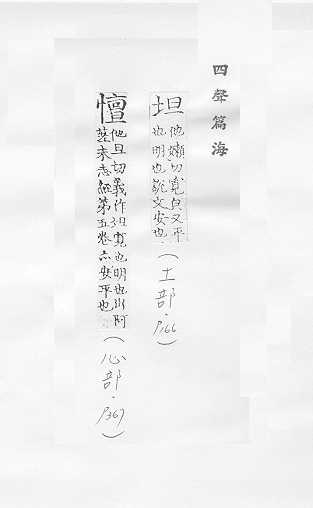 四聲篇海
坦 他嬾切寬皃又平
也明也說文安也
(土部·P166)
憻 他旦切義作坦寬也明也出阿
毗末志經第五卷亦安平也
(心部·P367)